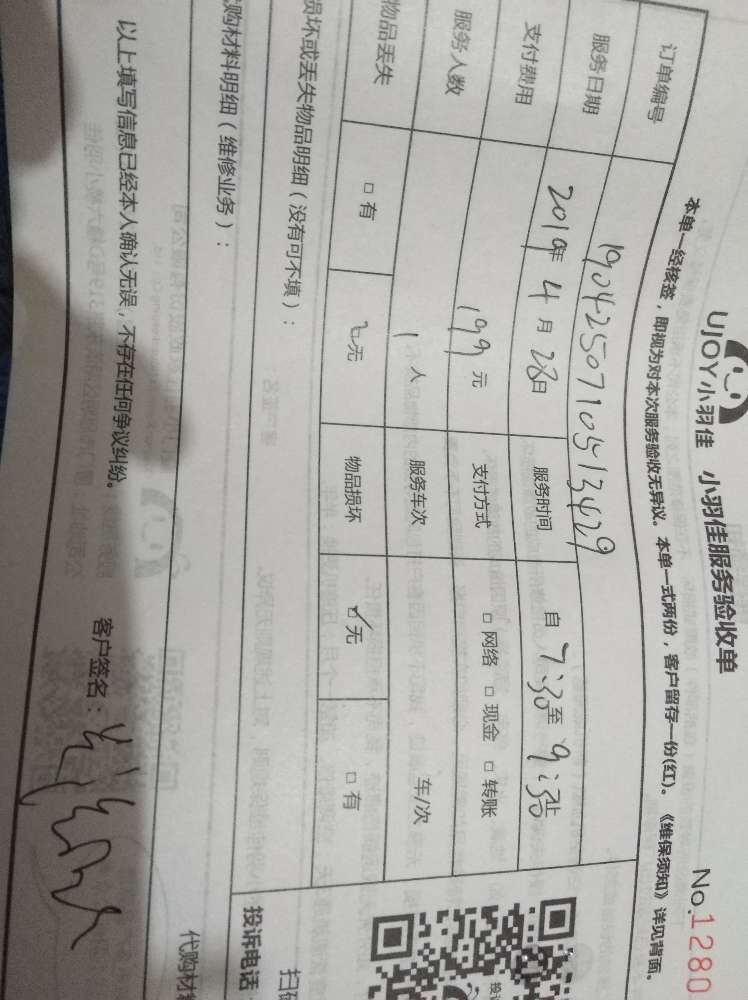 UJOY小羽佳 小羽佳服务验收单
No.1280
本单一经核签，即视为对本次服务验收无异议。本单一式两份，客户留存一份(红)。《维保须知》详见背面。
订单编号 1904250710513429
服务日期 2019年4月28日 服务时间 自7:30至9:30
支付费用 199元 支付方式 □网络 □现金 □转账
服务人数 1人 服务车次 车/次
物品丢失 □有 ☑无 物品损坏 ☑无 □有
损坏或丢失物品明细（没有可不填）：
代购材料明细（维修业务）：
投诉电话
代购材
以上填写信息已经本人确认无误，不存在任何争议纠纷。 客户签名：